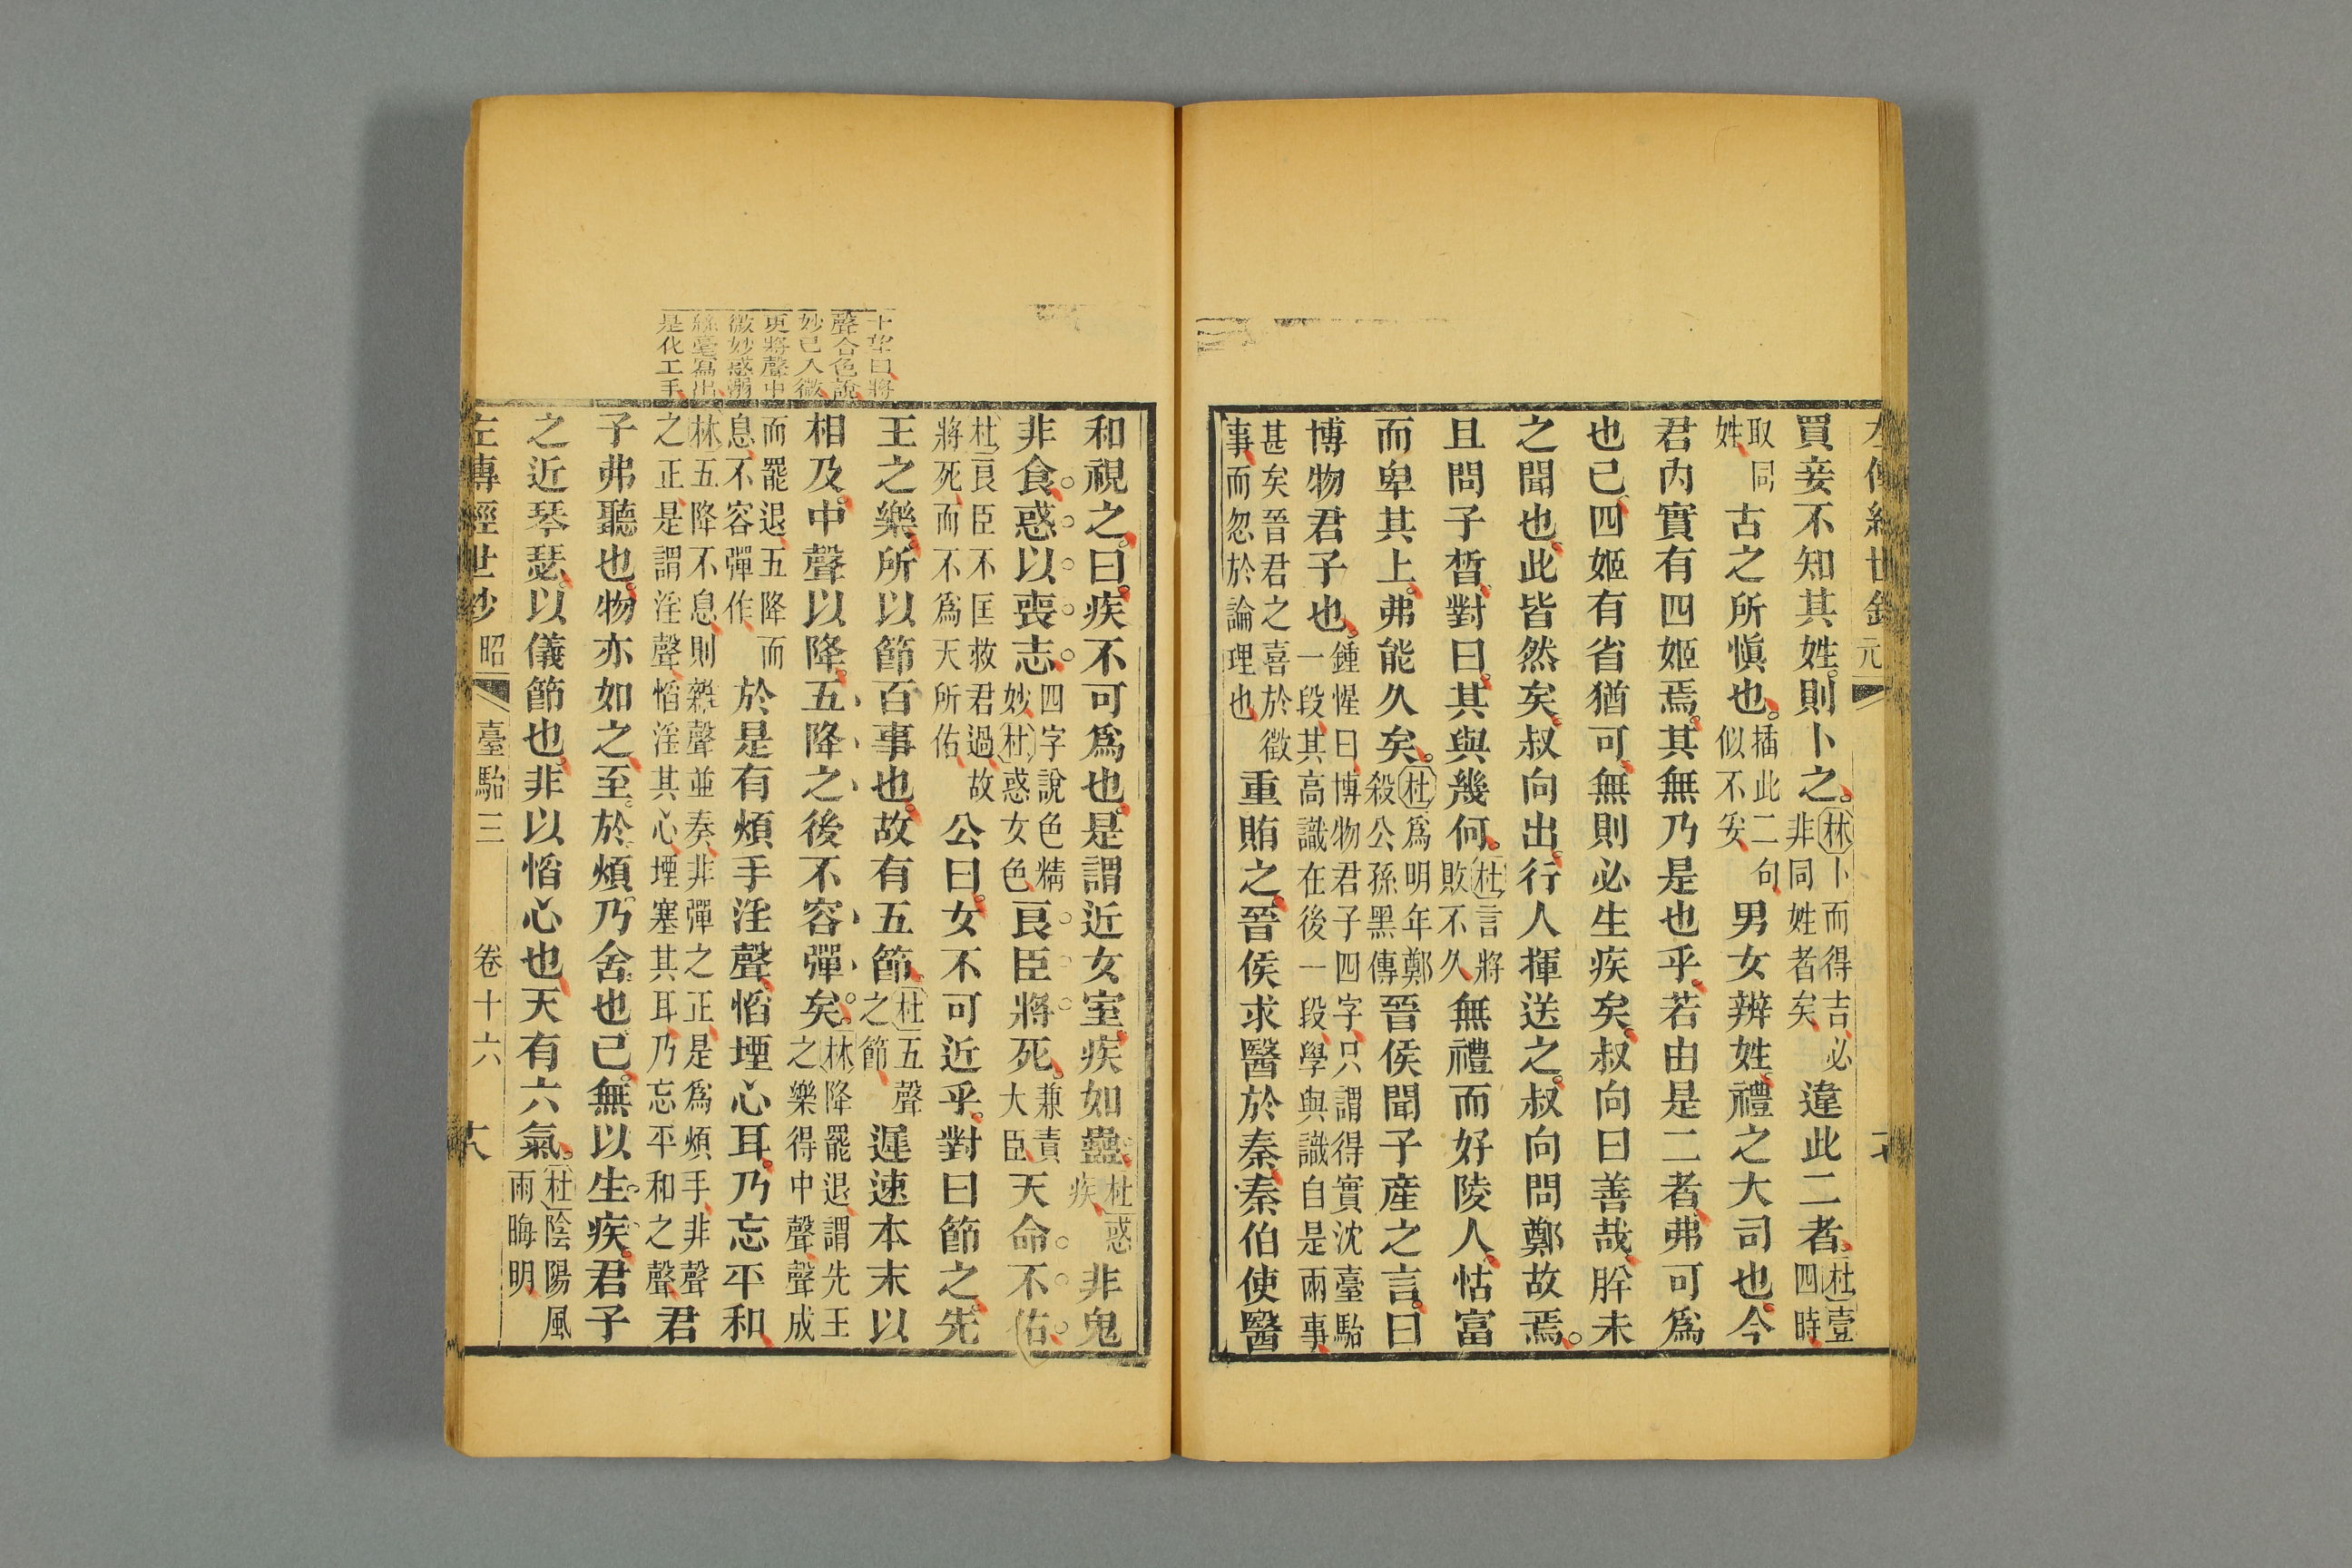 買妾不知其姓則卜之林卜而得吉必非同姓者矣違此二者杜壹四時
取同姓古之所慎也插此二句似不妥男女辨姓禮之大司也今
君内實有四姬焉其無乃是也乎若由是二者弗可爲
也已四姬有省猶可無則必生疾矣叔向曰善哉肸未
之聞也此皆然矣叔向出行人揮送之叔向問鄭故焉
且問子晳對曰其與幾何杜言將敗不久無禮而好陵人怙富
而卑其上弗能久矣杜爲明年鄭殺公孫黑傳晉侯聞子產之言曰
博物君子也鍾惺曰博物君子四字只謂得實沈臺駘一段其高識在後一段學與識自是兩事
甚矣晉君之喜於徵事而忽於論理也重賄之晉侯求醫於秦秦伯使醫
和視之曰疾不可爲也是謂近女室疾如蠱杜惑疾非鬼
非食惑以喪志四字說色精妙杜惑女色良臣將死兼責大臣天命不佑
杜良臣不匡救君過故將死而不爲天所佑公曰女不可近乎對曰節之先
王之樂所以節百事也故有五節杜五聲之節遲速本末以
相及中聲以降五降之後不容彈矣林降罷退謂先王之樂得中聲聲成
而罷退五降而息不容彈作於是有煩手淫聲慆堙心耳乃忘平和
林五降不息則雜聲並奏非彈之正是爲煩手非聲之正是謂淫聲慆淫其心堙塞其耳乃忘平和之聲君
子弗聽也物亦如之至於煩乃舍也已無以生疾君子
之近琴瑟以儀節也非以慆心也天有六氣杜陰陽風雨晦明
左傳經世鈔 昭 臺駘三 卷十六 十八
曰將
聲合色說
妙已入微
更將聲中
微妙惑溺
絲毫寫出
是化工手